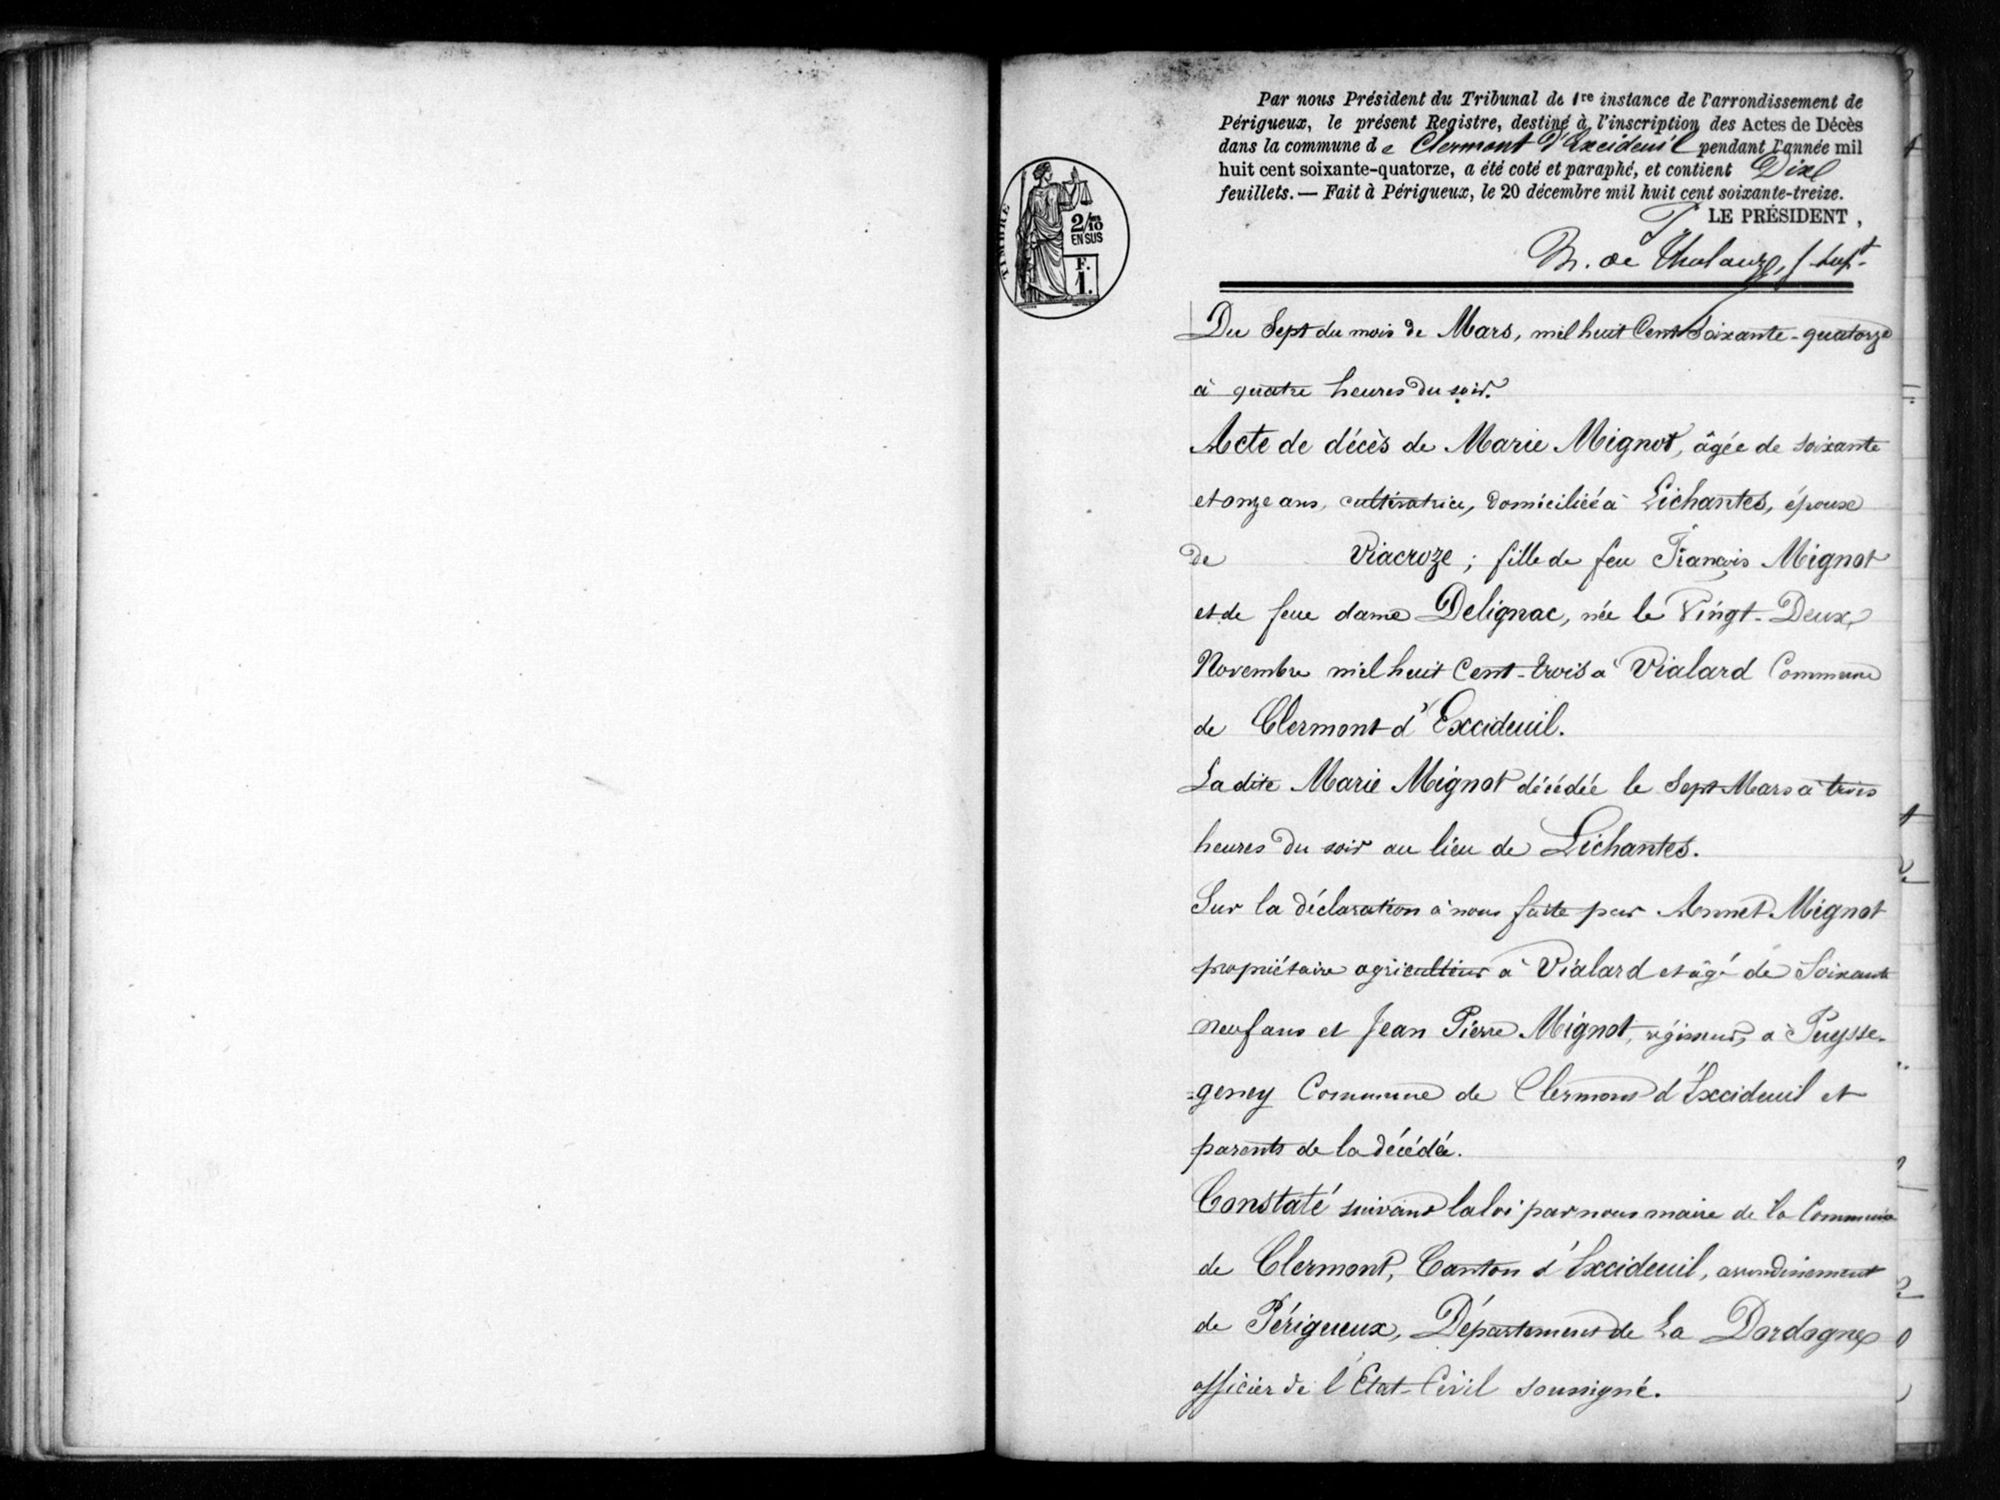 Par nous Président du Tribunal de 1re instance de l'arrondissement de
Périgueux, le présent Registre, destiné à l'inscription des Actes de Décès
dans la commune de Clermont d'Excideuil pendant l'année mil
huit cent soixante-quatorze, a été coté et paraphé, et contient Dix
feuillets. — Fait à Périgueux, le 20 décembre mil huit cent soixante-treize.
LE PRÉSIDENT,
TIMBRE
2/10
EN SUS
F.
1.
Du Sept du mois de Mars, mil huit Cent Soixante-quatorze
à quatre heures du soir.
Acte de décès de Marie Mignot, âgée de soixante
et onze ans, cultivatrice, domiciliée à Lichantes, épouse
de Viacroze ; fille de feu François Mignot
et de feue dame Delignac, née le Vingt-Deux
Novembre mil huit Cent-trois à Vialard Commune
de Clermont d'Excideuil.
La dite Marie Mignot décédée le Sept Mars à trois
heures du soir au lieu de Lichantes.
Sur la déclaration à nous faite par Annet Mignot
propriétaire agriculteur à Vialard et âgé de Soixante
neuf ans et Jean Pierre Mignot, régisseur, à Puysse-
=geney Commune de Clermont d'Excideuil et
parents de la décédée.
Constaté suivant la loi par nous maire de la Commune
de Clermont, Canton d'Excideuil, arrondissement
de Périgueux, Département de La Dordogne
officier de l'Etat-Civil soussigné.